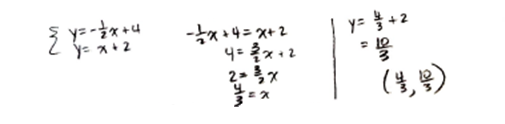 { y = -1/2x + 4
y = x + 2
-1/2x + 4 = x + 2
4 = 3/2x + 2
2 = 3/2x
4/3 = x
y = 4/3 + 2
= 10/3
(4/3, 10/3)